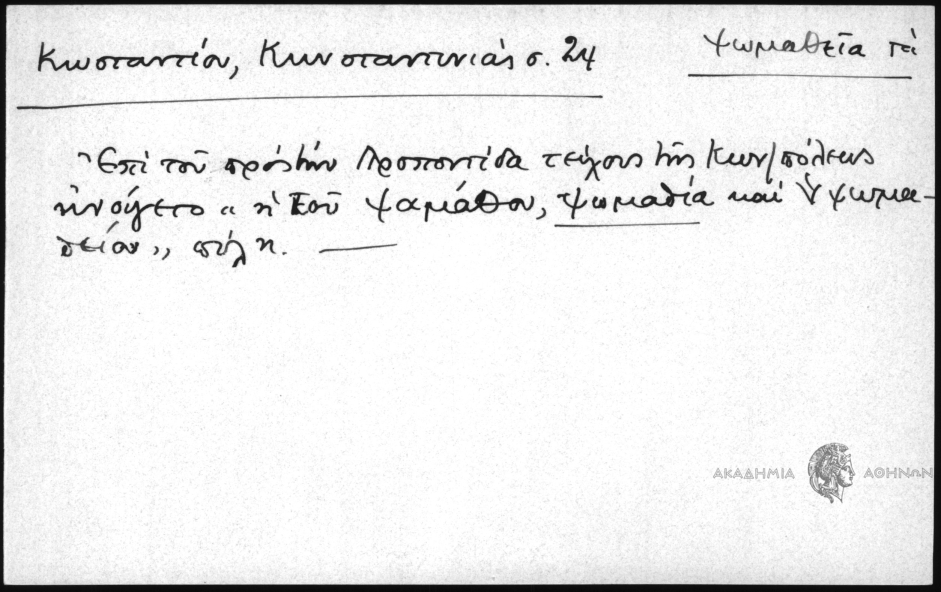 Κωσταντίου, Κωνσταντινιάς σ. 24
Ψωμαθεῖα τά
Ἐπί τοῦ πρός τήν Προποντίδα τείχους τῆς Κων/πόλεως
ἠνοίγετο „ ἡ τοῦ Ψαμάθου, Ψωμαθία καί Ὑψωμα-
θείου „ πύλη. —
ΑΚΑΔΗΜΙΑ ΑΘΗΝΩΝ